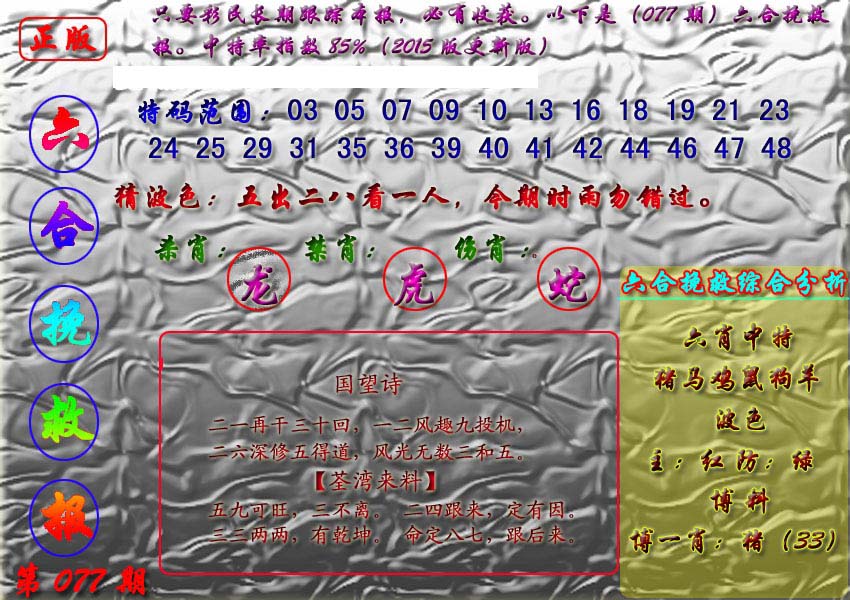 正版
只要彩民长期跟踪本报，必有收获。以下是（077期）六合挽救
报。中特率指数85%（2015版更新版）
六
合
挽
救
报
第 077 期
特码范围：03 05 07 09 10 13 16 18 19 21 23
24 25 29 31 35 36 39 40 41 42 44 46 47 48
猜波色：五出二八看一人，今期时雨勿错过。
杀肖：龙 禁肖：虎 伤肖：蛇
国望诗
二一再干三十回，一二风趣九投机，
二六深修五得道，风光无数三和五。
【荃湾来料】
五九可旺，三不离。 二四跟来，定有因。
三三两两，有乾坤。 命定八七，跟后来。
六合挽救综合分析
六肖中特
猪马鸡鼠狗羊
波色
主：红防：绿
博料
博一肖：猪（33）